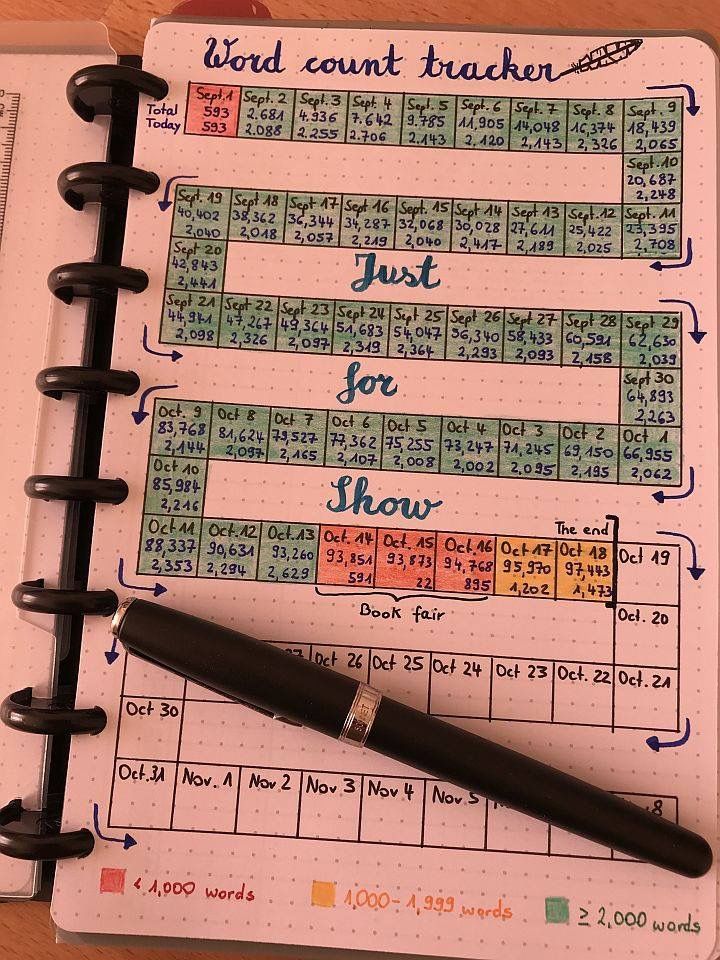 Word count tracker
Sept.1 Sept. 2 Sept. 3 Sept. 4 Sept. 5 Sept. 6 Sept. 7 Sept. 8 Sept. 9
Total 593 2,681 4,936 7.642 9.785 11,905 14,048 16,374 18,439
Today 593 2.088 2.255 2.706 2.143 2.120 2,143 2,326 2,065
Sept. 10
20,687
2,248
Sept. 19 Sept. 18 Sept 17 Sept. 16 Sept. 15 Sept 14 Sept 13 Sept.12 Sept. 11
40,402 38,362 36,344 34,287 32,068 30,028 27,611 25,422 23,395
2,040 2,018 2,057 2,219 2,040 2,417 2,189 2,025 2,708
Sept 20
42,843
2,441
Just
Sept 21 Sept 22 Sept 23 Sept 24 Sept 25 Sept 26 Sept 27 Sept 28 Sept 29
44,941 47,267 49,364 51,683 54,047 56,340 58,433 60,591 62,630
2,098 2,326 2,097 2,319 2,364 2,293 2,093 2,158 2,039
for
Sept 30
64,893
2,263
Oct. 9 Oct 8 Oct 7 Oct 6 Oct 5 Oct 4 Oct 3 Oct 2 Oct 1
83,768 81,624 79,527 77,362 75,255 73,247 71,245 69,150 66,955
2,144 2,097 2,165 2,107 2,008 2,002 2,095 2,195 2,062
Oct 10
85,984
2,216
Show
The end
Oct 11 Oct.12 Oct.13 Oct. 14 Oct. 15 Oct.16 Oct 17 Oct 18 Oct 19
88,337 90,631 93,260 93,851 93,873 94,768 95,970 97,443
2,353 2,294 2,629 591 22 895 1,202 1,473
Book fair
Oct. 20
Oct 26 Oct 25 Oct 24 Oct 23 Oct. 22 Oct. 21
Oct 30
Oct.31 Nov. 1 Nov 2 Nov 3 Nov 4 Nov 5
< 1,000 words 1,000 - 1,999 words ≥ 2,000 words